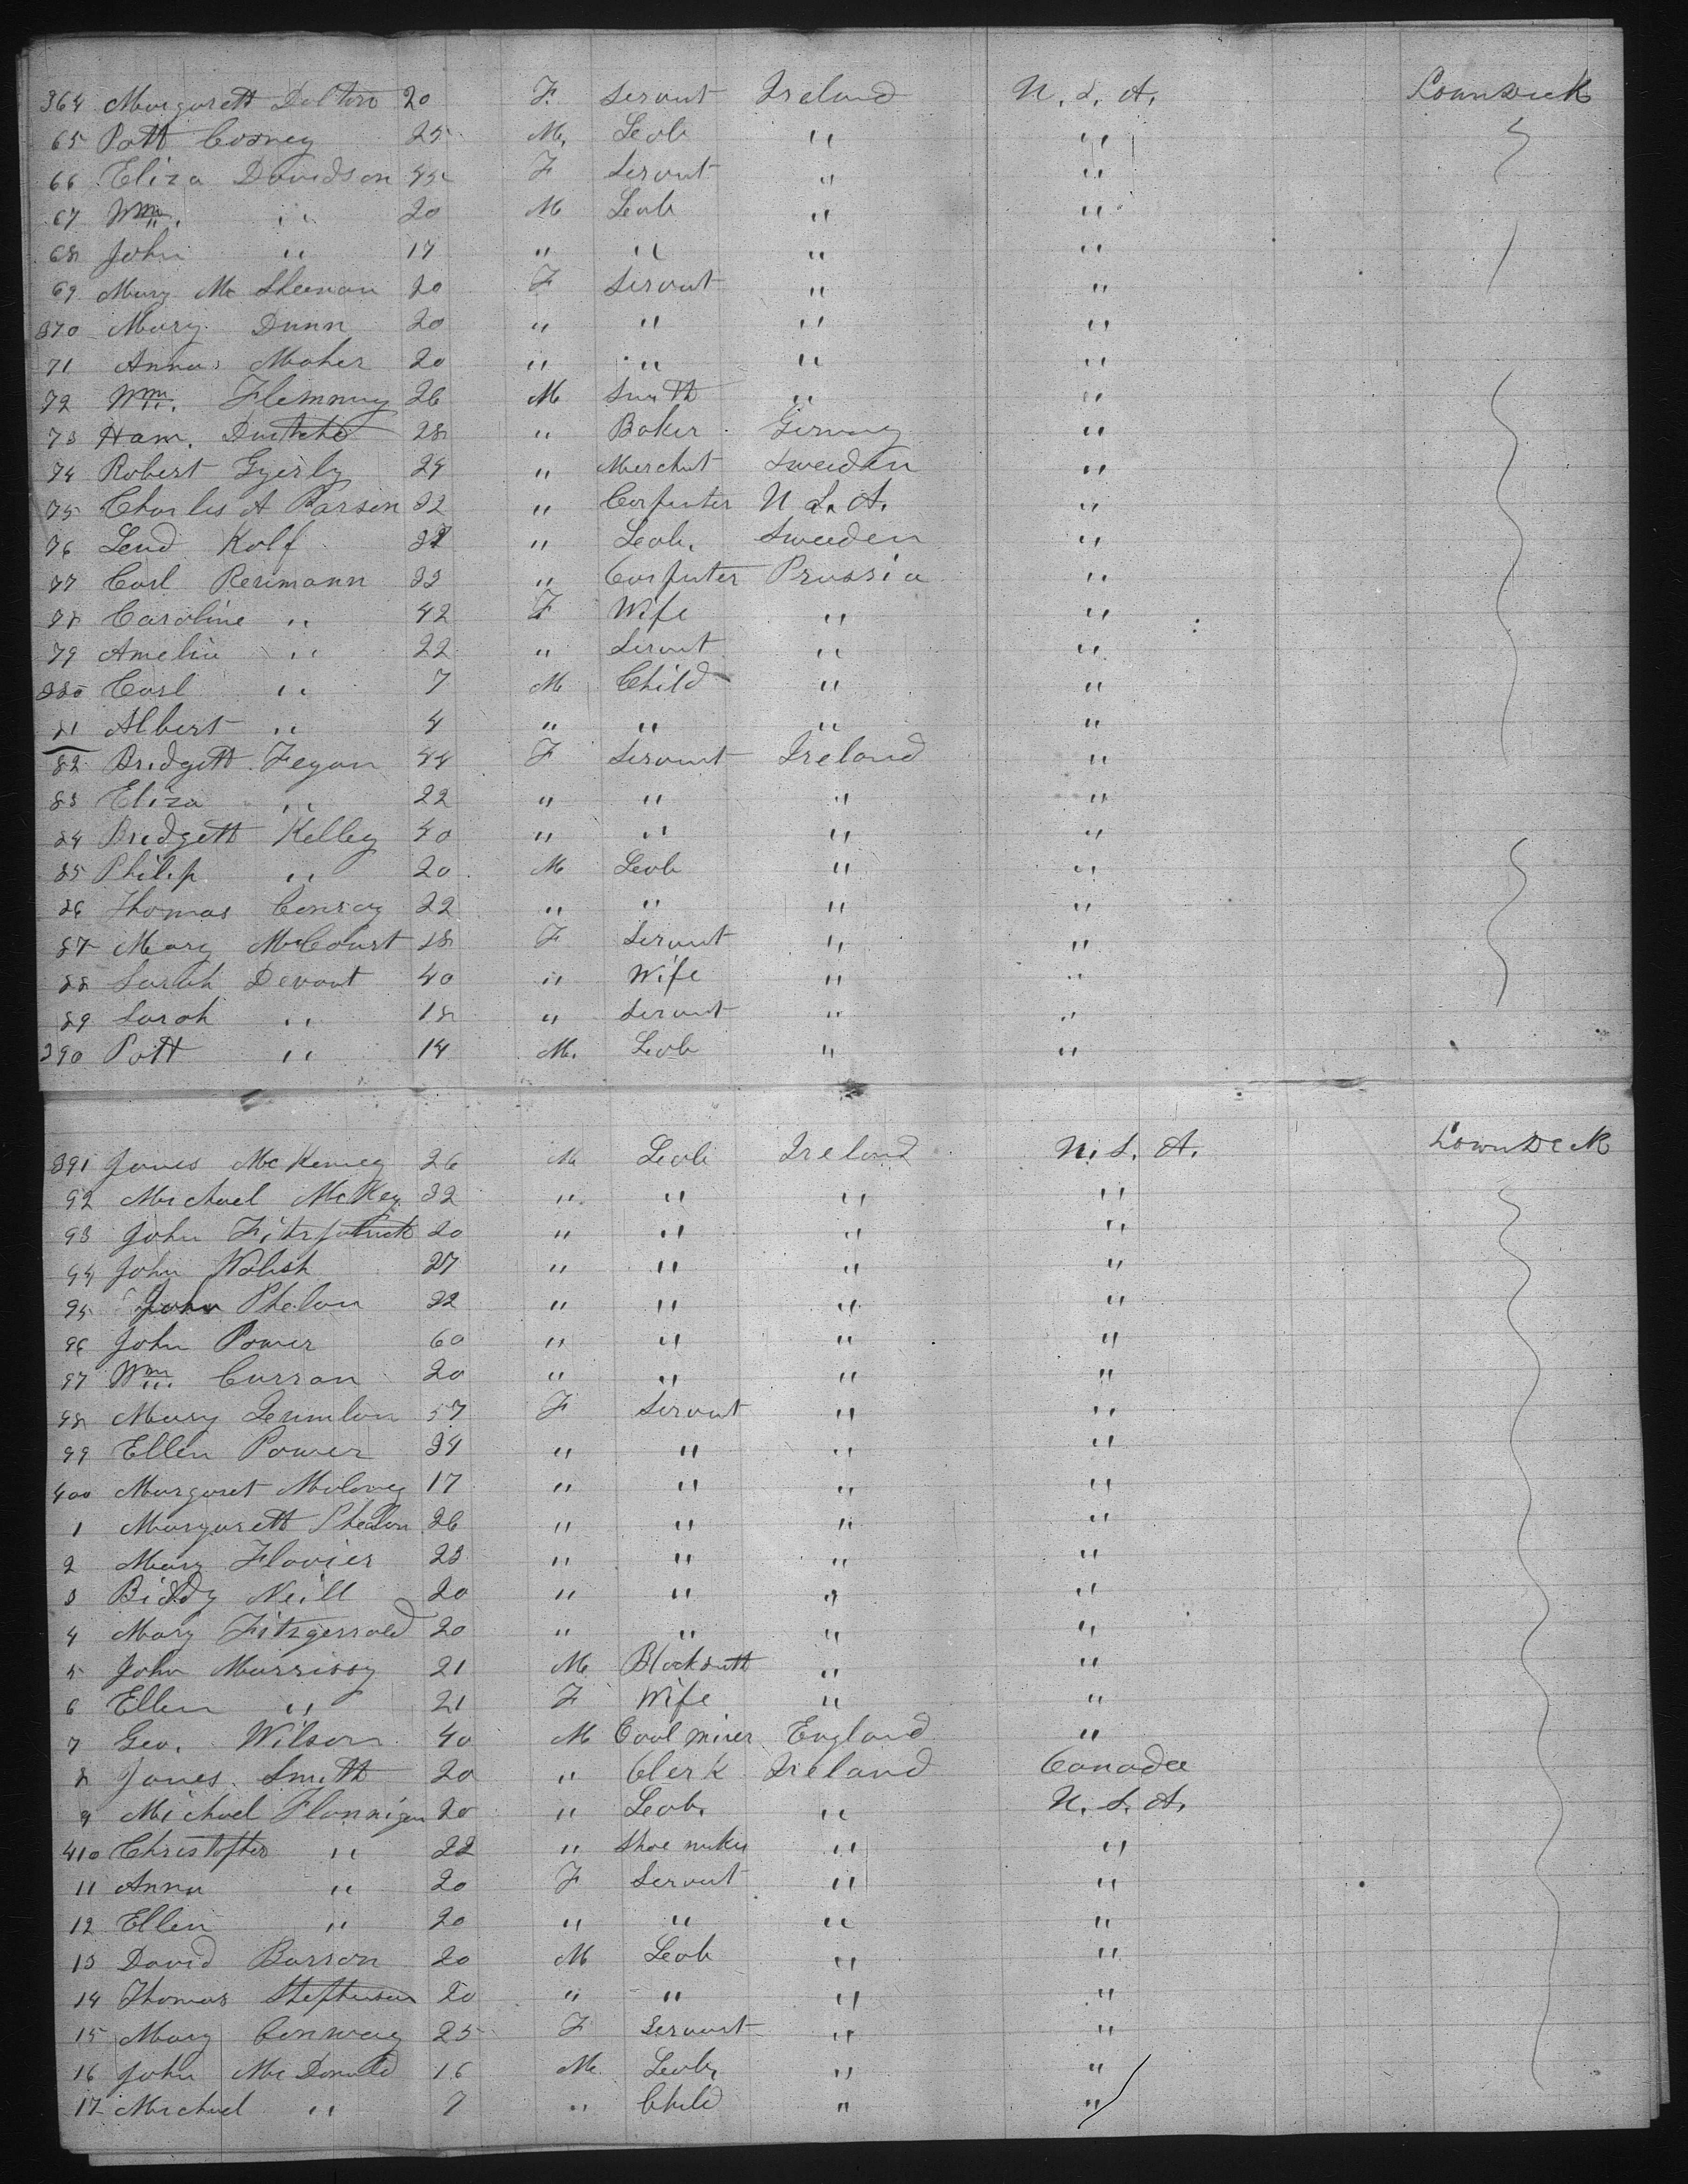 364 Margarett Dolton 20 F. Servut Ireland U. S. A. Lown Deck
65 Patt Cosney 25 M. Leob " "
66 Eliza Davidson 45 F Servut " "
67 Wm. " 20 M Leob " "
68 John " 17 " " " "
69 Mary Mc Sheenan 20 F Servut " "
370 Mary Dunn 20 " " " "
71 Anna Maher 20 " " " "
72 Wm. Flemmy 26 M Smith " "
73 Ham. 28 " Baker Germy "
74 Robert Gyerly 24 " Merchut Sweeden "
75 Charles A Parson 32 " Carputer U S. A. "
76 Kolf " Leob. Sweeden "
77 Carl Reumann 33 " Carputer Prussia "
78 Caroline " 42 F Wife " "
79 Amelia " 22 " Servut " "
380 Carl " 7 M Child " "
81 Albert " 4 " " " "
82 Bridgett Fegan 44 F Servut Ireland "
83 Eliza " 22 " " " "
84 Bridgett Kelley 40 " " " "
85 Philip " 20 M Leob " "
86 Thomas Conray 22 " " " "
87 Mary McCourt 18 F Servut " "
88 Sarah Devout 40 " Wife " "
89 Sarah " 18 " Servut " "
390 Patt " 14 M. Leob " "
391 James McKenney 26 M Leob Ireland U. S. A. Lown Deck
92 Michael McKey 32 " " " "
93 John Fitzpatrick 20 " " " "
94 John Walsh 27 " " " "
95 John Phelan 22 " " " "
96 John Power 60 " " " "
97 Wm. Curran 20 " " " "
98 Mary 57 F Servut " "
99 Ellen Power 34 " " " "
400 Margaret Maloney 17 " " " "
1 Margarett Phealan 26 " " " "
2 Mary Flavier 23 " " " "
3 Biddy Neill 20 " " " "
4 Mary Fitzgerrald 20 " " " "
5 John Murrissy 21 M Blacksmith " "
6 Ellen " 21 F Wife " "
7 Geo. Wilson 40 M Coal miner England "
8 James Smith 20 " Clerk Ireland Canada
9 Michael Flannigan 20 " Leob. " U. S. A.
410 Christopher " 22 " Shoe maker " "
11 Anna " 20 F Servut " "
12 Ellen " 20 " " " "
13 David Barron 20 M Leob " "
14 Thomas Stephenson 20 " " " "
15 Mary Conway 25 F Servant " "
16 John McDonald 16 M Leob. " "
17 Michael " 9 " Child " "